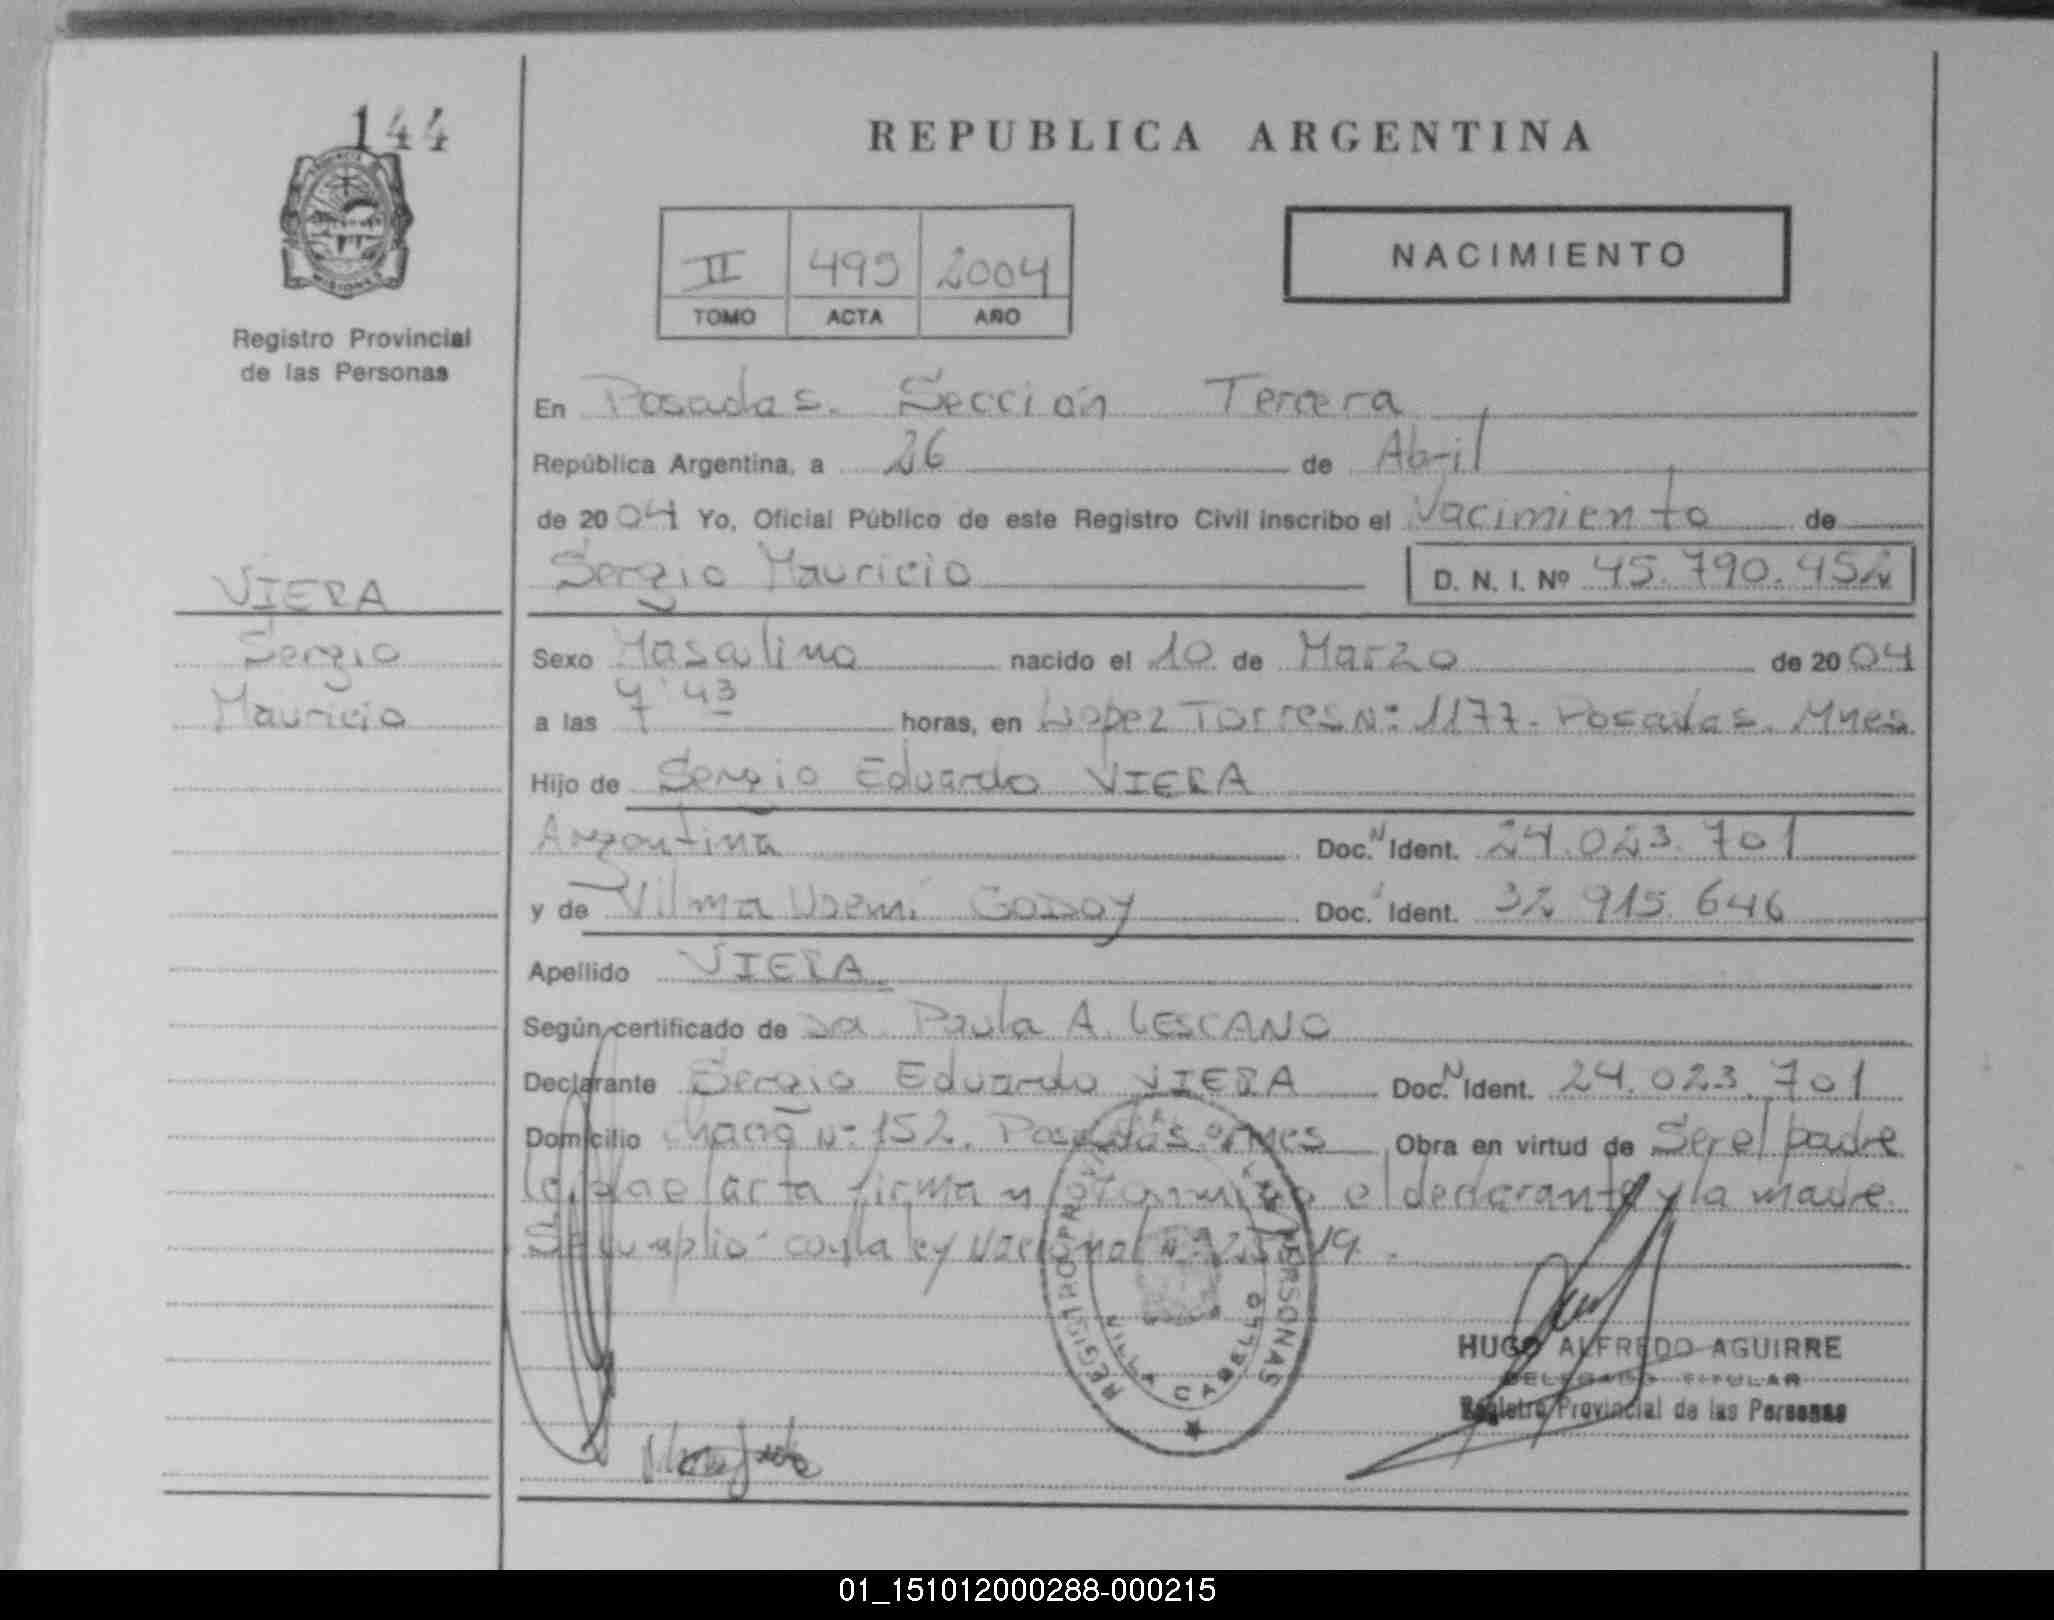 144
Registro Provincial
de las Personas
VIERA
Sergio
Mauricio
REPUBLICA ARGENTINA
II 499 2004
TOMO ACTA AÑO
NACIMIENTO
En Posadas. Sección Tercera
República Argentina, a 26 de Abril
de 2004 Yo, Oficial Público de este Registro Civil inscribo el Nacimiento de
Sergio Mauricio D. N. I. Nº 45.790.452
Sexo Masculino nacido el 10 de Marzo de 2004
a las 7 43 horas, en Lopez Torres Nº 1177. Posadas. Mnes.
Hijo de Sergio Eduardo VIERA
Argentina Doc. N Ident. 24.023.701
y de Vilma Noemí GODOY Doc. Ident. 32 915 646
Apellido VIERA
Según certificado de Da. Paula A. LESCANO
Declarante Sergio Eduardo VIERA Doc. N Ident. 24.023.701
Domicilio Nº 152. Posadas Mnes Obra en virtud de Ser el padre
el acta firma el declarante y la madre.
Se cumplio con la ley Nacional Nº
REGISTRO PROVINCIAL PERSONAS
VILLA CABELLO
HUGO ALFREDO AGUIRRE
DELEGADO TITULAR
Registro Provincial de las Personas
01_151012000288-000215